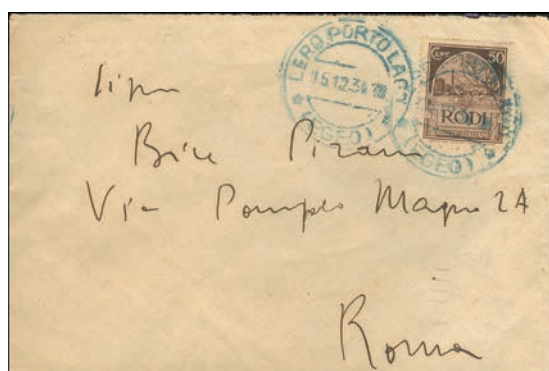 LERO PORTO LAGO
15.12.34
(EGEO)
Cent. 50
RODI
(EGEO)
Bice Pirani
Via Pompeo Magno 2A
Roma